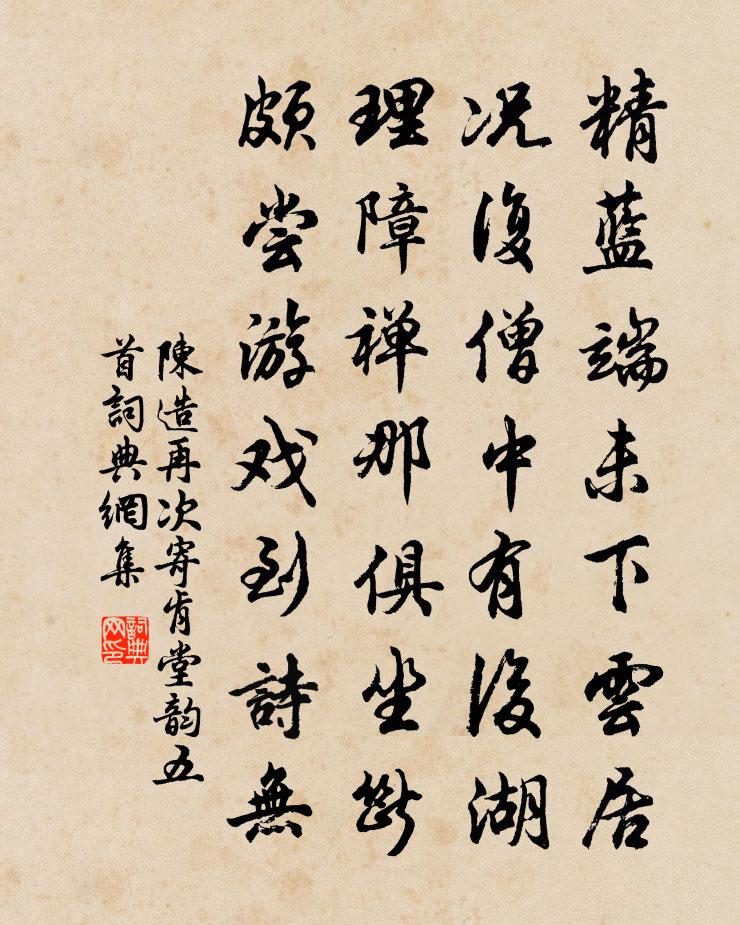 精藍端未下雲居
况復僧中有後湖
理障禅那俱坐斷
頗尝游戏到詩無
陳造再次寄肯堂韵五
首詞典網集
詞典網印